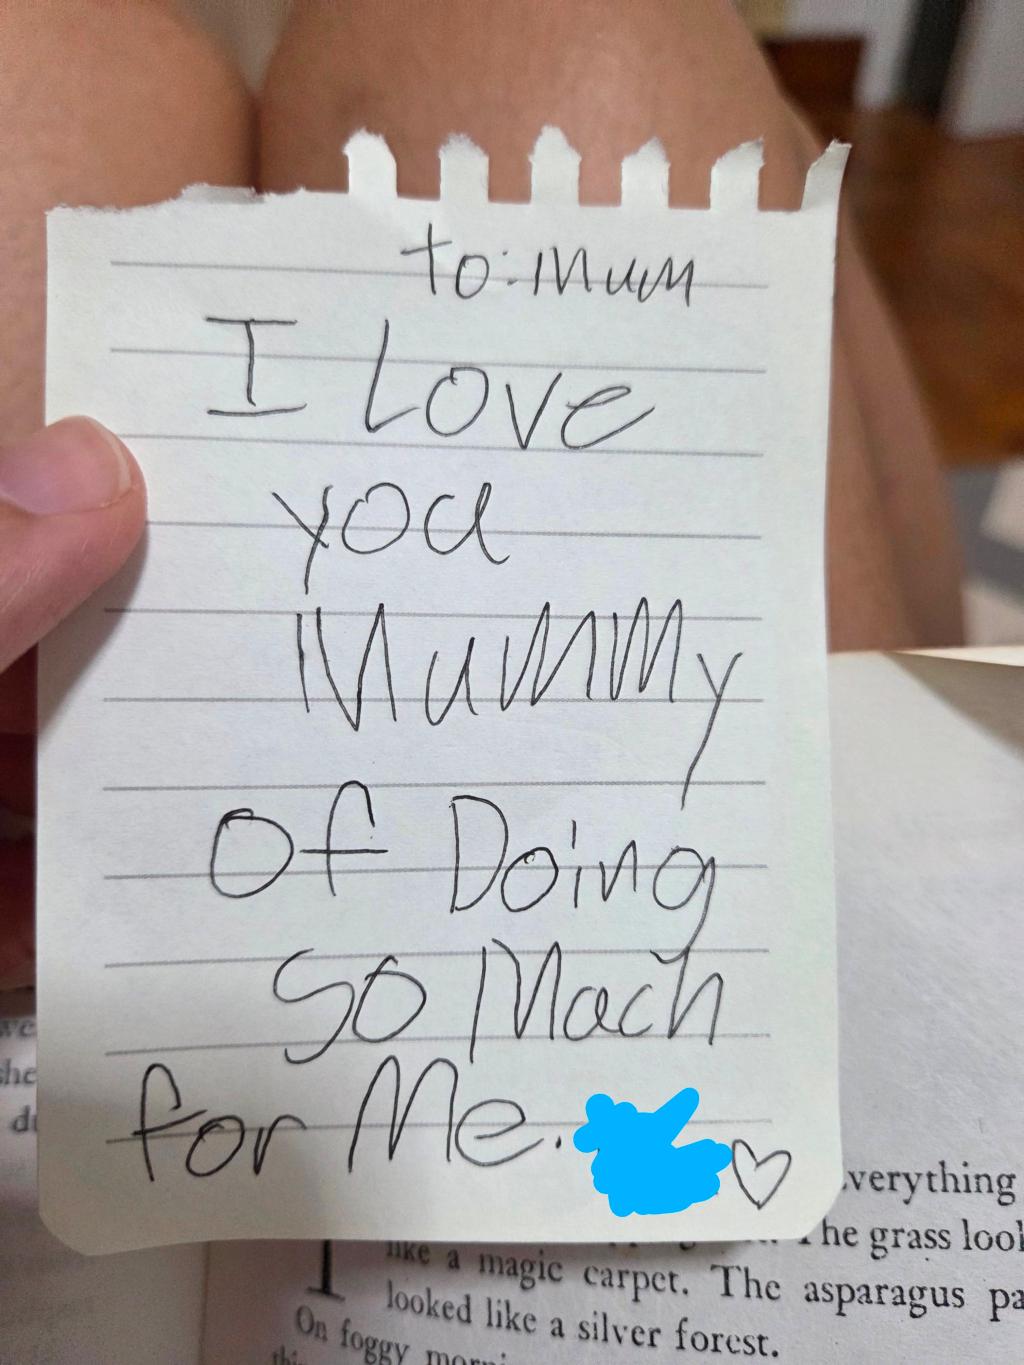 to: Mum
I Love
you
Mummy
Of Doing
So Mach
for Me.
everything
The grass look
like a magic carpet. The asparagus pa
looked like a silver forest.
On foggy morni
we
she